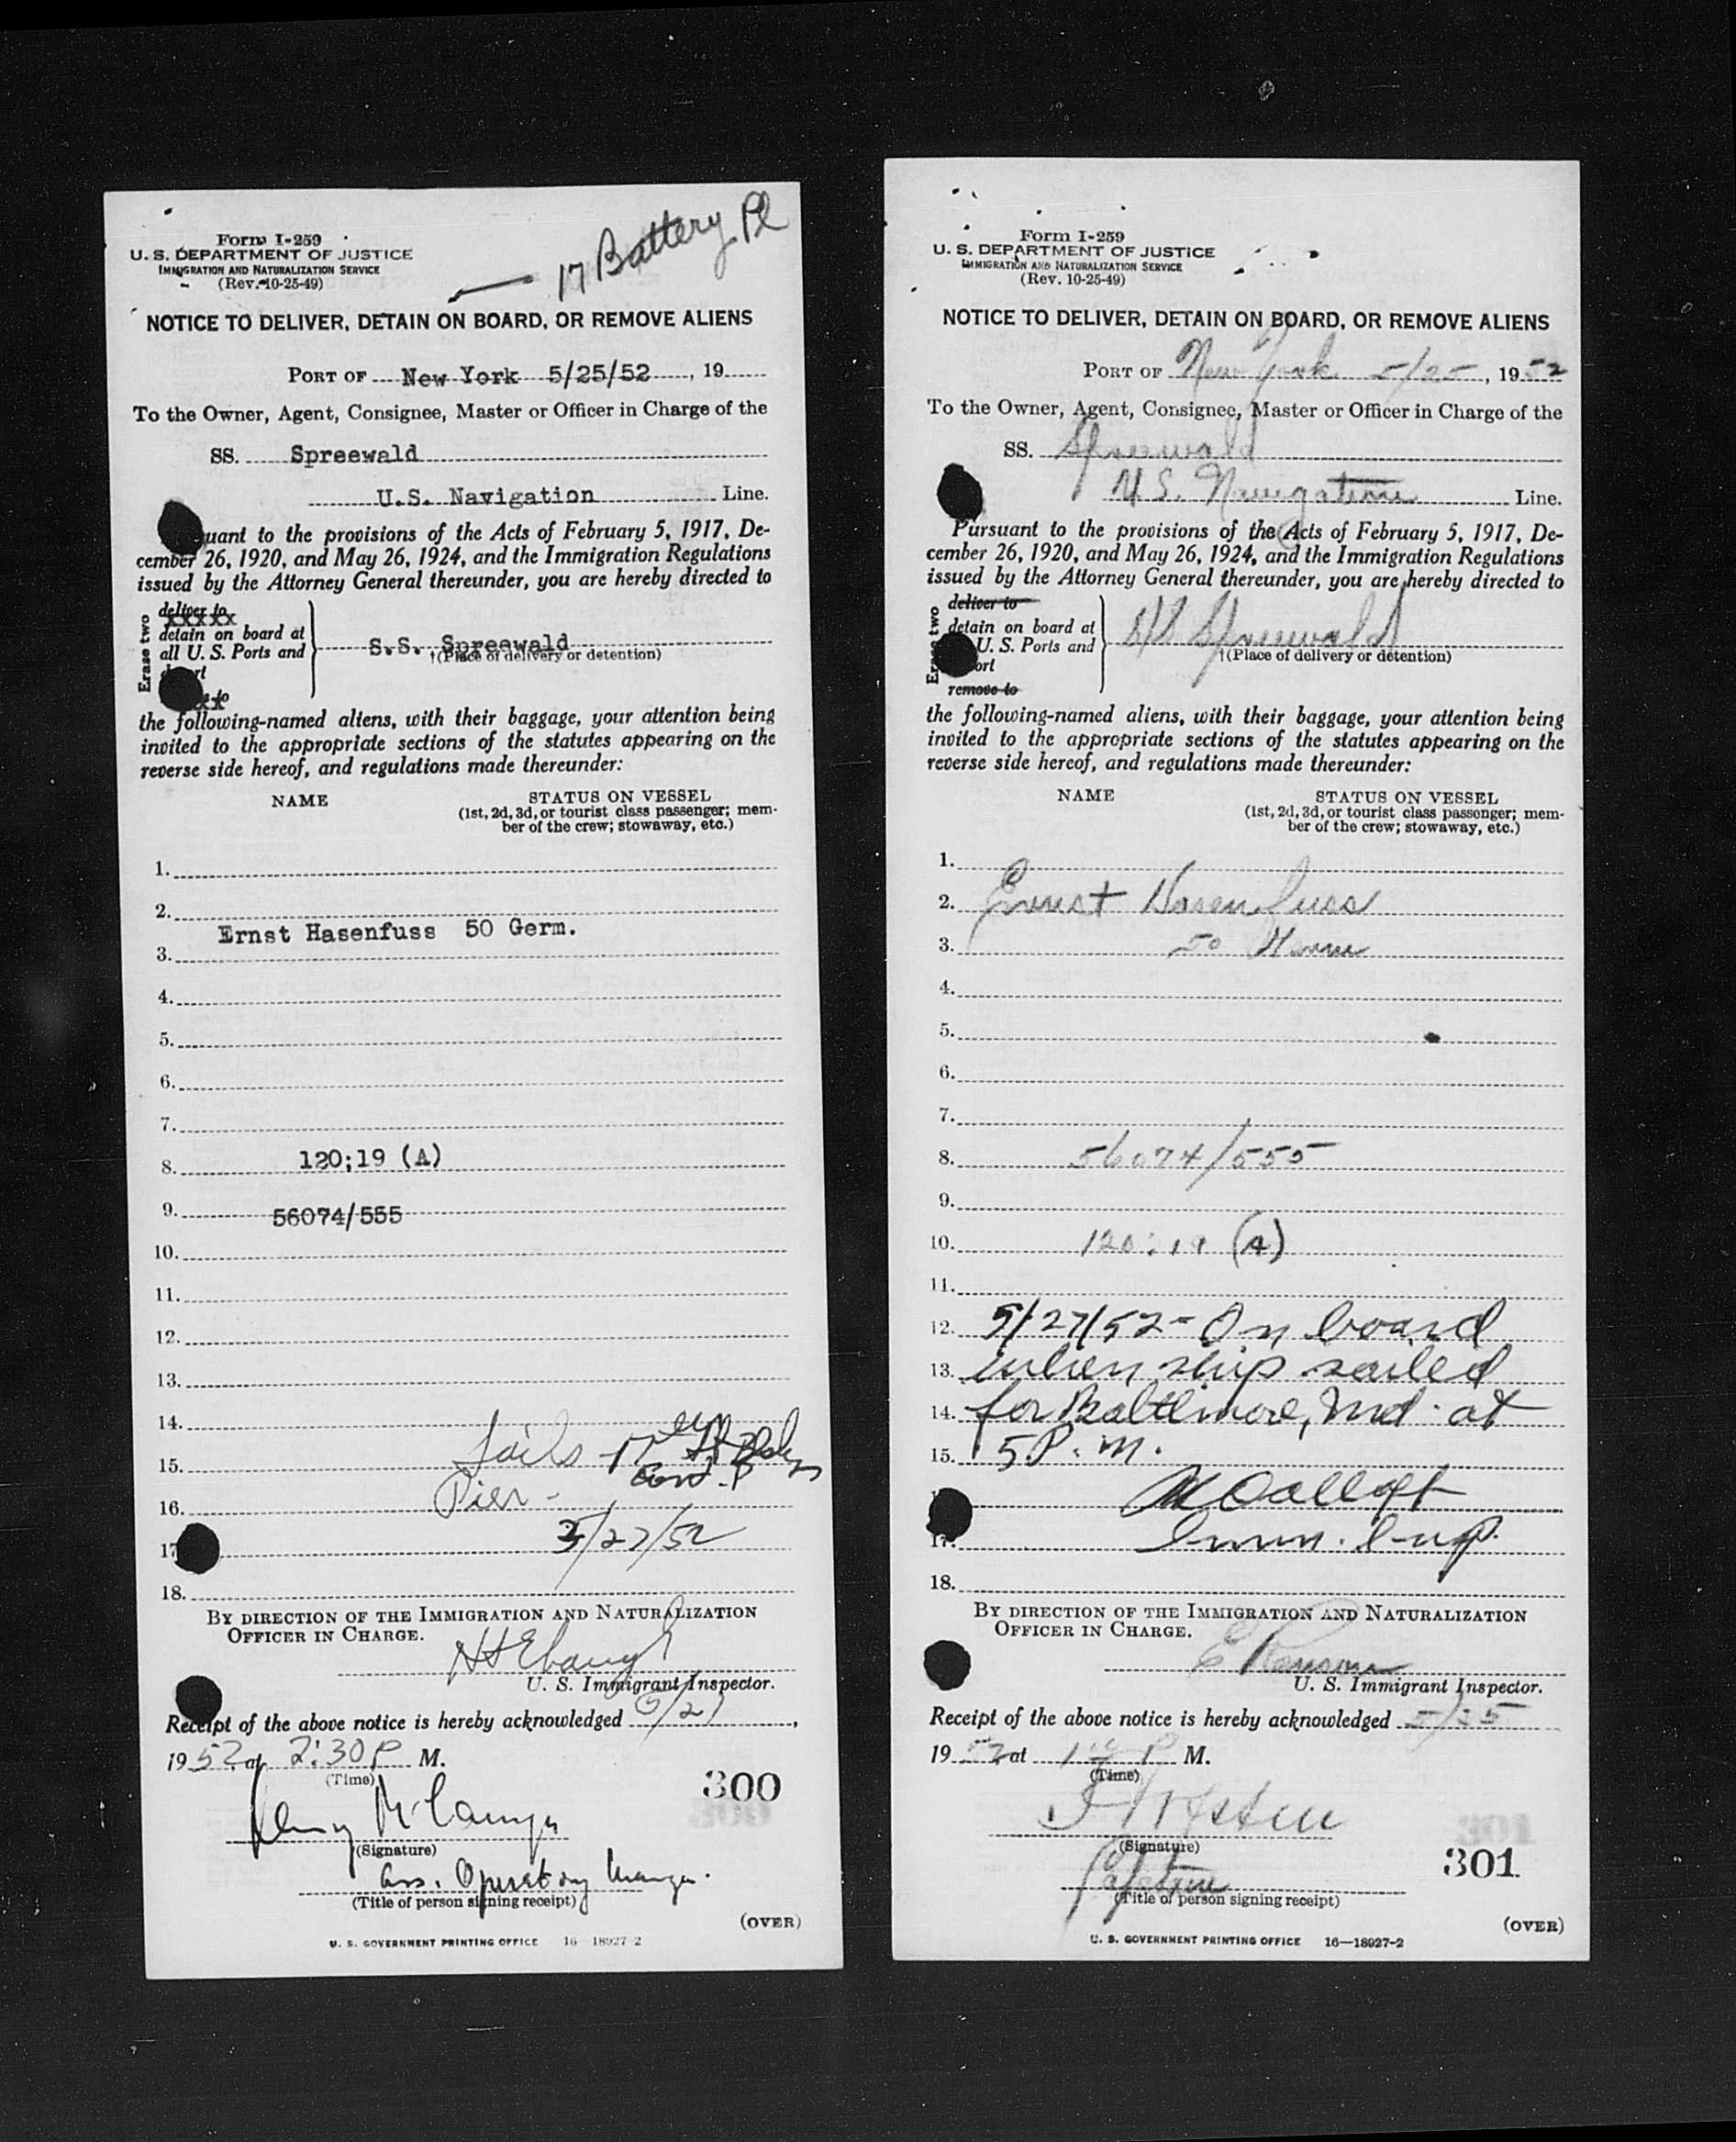 17 Battery Pl
Form I-259
U. S. DEPARTMENT OF JUSTICE
IMMIGRATION AND NATURALIZATION SERVICE
(Rev. 10-25-49)
NOTICE TO DELIVER, DETAIN ON BOARD, OR REMOVE ALIENS
PORT OF New York 5/25/52, 19
To the Owner, Agent, Consignee, Master or Officer in Charge of the
SS. Spreewald
U.S. Navigation Line.
uant to the provisions of the Acts of February 5, 1917, De-
cember 26, 1920, and May 26, 1924, and the Immigration Regulations
issued by the Attorney General thereunder, you are hereby directed to
Erase two
deliver to
xxxxx
detain on board at
all U. S. Ports and
S.S. Spreewald
†(Place of delivery or detention)
to
the following-named aliens, with their baggage, your attention being
invited to the appropriate sections of the statutes appearing on the
reverse side hereof, and regulations made thereunder:
NAME
STATUS ON VESSEL
(1st, 2d, 3d, or tourist class passenger; mem-
ber of the crew; stowaway, etc.)
1.
2.
Ernst Hasenfuss 50 Germ.
3.
4.
5.
6.
7.
8. 120:19 (A)
9. 56074/555
10.
11.
12.
13.
14.
15. Sails 17
16. Pier -
17 5/27/52
18.
BY DIRECTION OF THE IMMIGRATION AND NATURALIZATION
OFFICER IN CHARGE.
U. S. Immigrant Inspector.
Receipt of the above notice is hereby acknowledged
1952 at 2:30 P M.
(Time)
300
(Signature)
Ass. Operating Manager.
(Title of person signing receipt)
(OVER)
U. S. GOVERNMENT PRINTING OFFICE 16 18927-2
Form I-259
U. S. DEPARTMENT OF JUSTICE
IMMIGRATION AND NATURALIZATION SERVICE
(Rev. 10-25-49)
NOTICE TO DELIVER, DETAIN ON BOARD, OR REMOVE ALIENS
PORT OF New York 5/25, 1952
To the Owner, Agent, Consignee, Master or Officer in Charge of the
SS. Spreewald
U.S. Navigation Line.
Pursuant to the provisions of the Acts of February 5, 1917, De-
cember 26, 1920, and May 26, 1924, and the Immigration Regulations
issued by the Attorney General thereunder, you are hereby directed to
deliver to
detain on board at
U. S. Ports and
ort
S/S Spreewald
†(Place of delivery or detention)
remove to
the following-named aliens, with their baggage, your attention being
invited to the appropriate sections of the statutes appearing on the
reverse side hereof, and regulations made thereunder:
NAME
STATUS ON VESSEL
(1st, 2d, 3d, or tourist class passenger; mem-
ber of the crew; stowaway, etc.)
1.
2. Ernst Hasenfuss
3. 50 Germ
4.
5.
6.
7.
8. 56074/555
9.
10. 120:19 (A)
11.
12. 5/27/52 - On board
13. when ship sailed
14. for Baltimore, Md. at
15. 5 P.m.
17. Imm. Insp.
18.
BY DIRECTION OF THE IMMIGRATION AND NATURALIZATION
OFFICER IN CHARGE.
U. S. Immigrant Inspector.
Receipt of the above notice is hereby acknowledged 5/25
1952 at P M.
(Time)
(Signature)
301
Captain
(Title of person signing receipt)
(OVER)
U. S. GOVERNMENT PRINTING OFFICE 16—18927-2